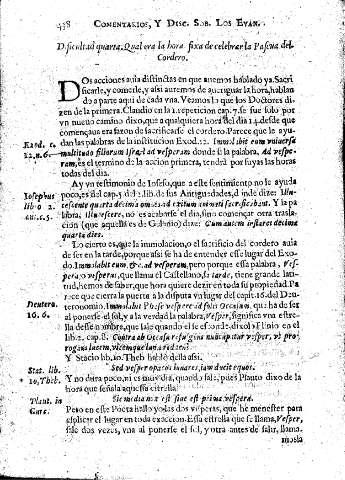 438 COMENTARIOS, Y DISC. SOB. LOS EVAN.
Dificultad quarta. Qual era la hora fixa de celebrar la Pascua del
Cordero.
DOs acciones auia distinctas en que auemos hablado ya. Sacri
ficarle, y comerle, y assi auemos de aueriguar la hora, hablan
do a parte aqui de cada vna. Veamos lo que los Doctores di-
zen de la primera. Claudio en la 1. repeticion cap. 7. se fue solo por
vn nueuo camino dixo, que a qualquiera hora del dia 14. desde que
començaua era fazon de sacrificarse el cordero. Parece que le ayu-
Exod. c. dan las palabras de la institucion Exod. 12. Immolabit eum vniuersa
12. n. 6. multitudo filiorum Israel ad vesperam donde si la palabra, ad vespe-
ram, es el termino de la accion primera, tendrà por suyas las horas
todas del dia.
Ay vn testimonio de Iosefo, que a este sentimiento no le ayuda
Iosephus poco, es del cap. 5 del 2. lib. de sus Antiguedades, dõnde dize:
lib. 2. quarta decima
c. 5. y la pa
labra, Illuxescere, no es acabarse el dia, sino començar otra trasla-
cion (que aquella es de Galanio) dize: Cum autem instaret decima
quarta dies.
Lo cierto es, que la immolacion, o el sacrificio del cordero auia
de ser en la tarde, porque assi se ha de entender esse lugar del Exo-
do. Immolabit eum, &c. ad vesperam, pero porque essa palabra, Ves-
pera, o vesperas, que llama el Castellano, la tarde, tiene grande lati-
tud, hemos de saber, que hora quiere dezir en toda su propiedad. Pa
Deutero. rece que cierra la puerta a la disputa vn lugar del capit. 16. del Deu-
16. 6. teronomio. Immolabis Phase vespere ad solis Occasum, que ha de ser
al ponerse el sol, y a la verdad la palabra, Vesper, significa vna estre-
lla desse nombre, que sale quando el se esconde: dixolo Plinio en el
lib. 2. cap. 8. Contra ab Occasu refulgens nuncupatur vesper, vt pro-
rogans lucem, vicemque lunæ reddens.
Stat. lib. Y Stacio lib. 10. Theb. hablò della assi.
10. Theb. Sed vesper opacos lunares, iam ducit equos.
Y no duira poco, ni es muy dia, quando sale, pues Plauto dixo de la
Plaut. in hora que señala aquella estrella.
Curc. Sie media nox est siue est prima vespera.
Pero en este Poeta hallo yo las dos visperas, que he menester para
explicar el lugar en toda exaccion. Essa estrella que se llama, Vesper,
sale dos vezes, vna al ponerse el sol, y otra antes de salir, llama-
mosla